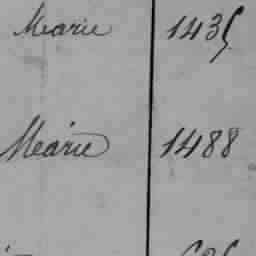 Marie 1435
Marie 1488